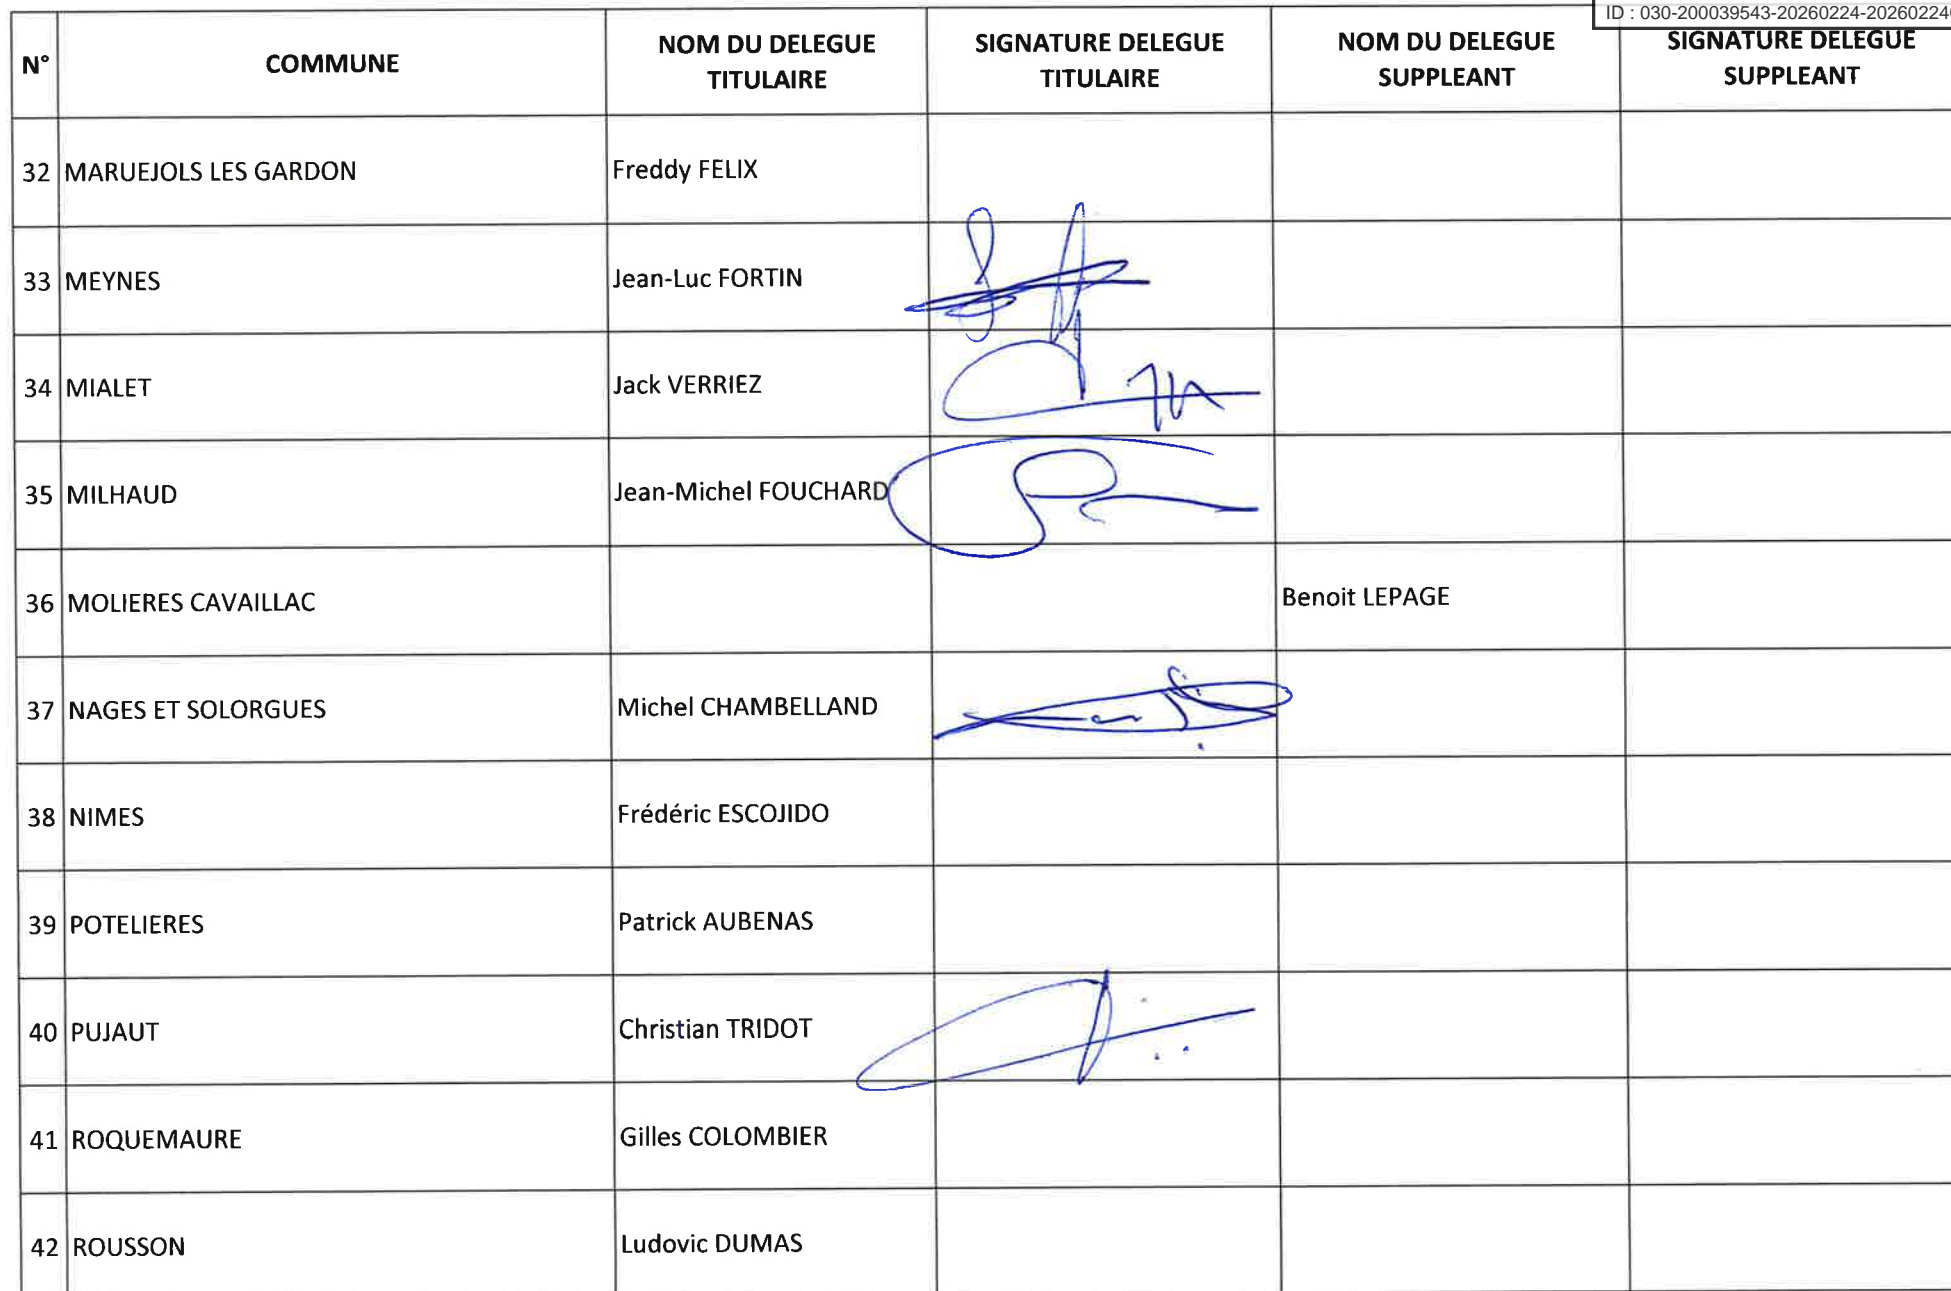 ID : 030-200039543-20260224-20260224
N°
COMMUNE
NOM DU DELEGUE
TITULAIRE
SIGNATURE DELEGUE
TITULAIRE
NOM DU DELEGUE
SUPPLEANT
SIGNATURE DELEGUE
SUPPLEANT
32 MARUEJOLS LES GARDON Freddy FELIX
33 MEYNES Jean-Luc FORTIN
34 MIALET Jack VERRIEZ
35 MILHAUD Jean-Michel FOUCHARD
36 MOLIERES CAVAILLAC Benoit LEPAGE
37 NAGES ET SOLORGUES Michel CHAMBELLAND
38 NIMES Frédéric ESCOJIDO
39 POTELIERES Patrick AUBENAS
40 PUJAUT Christian TRIDOT
41 ROQUEMAURE Gilles COLOMBIER
42 ROUSSON Ludovic DUMAS